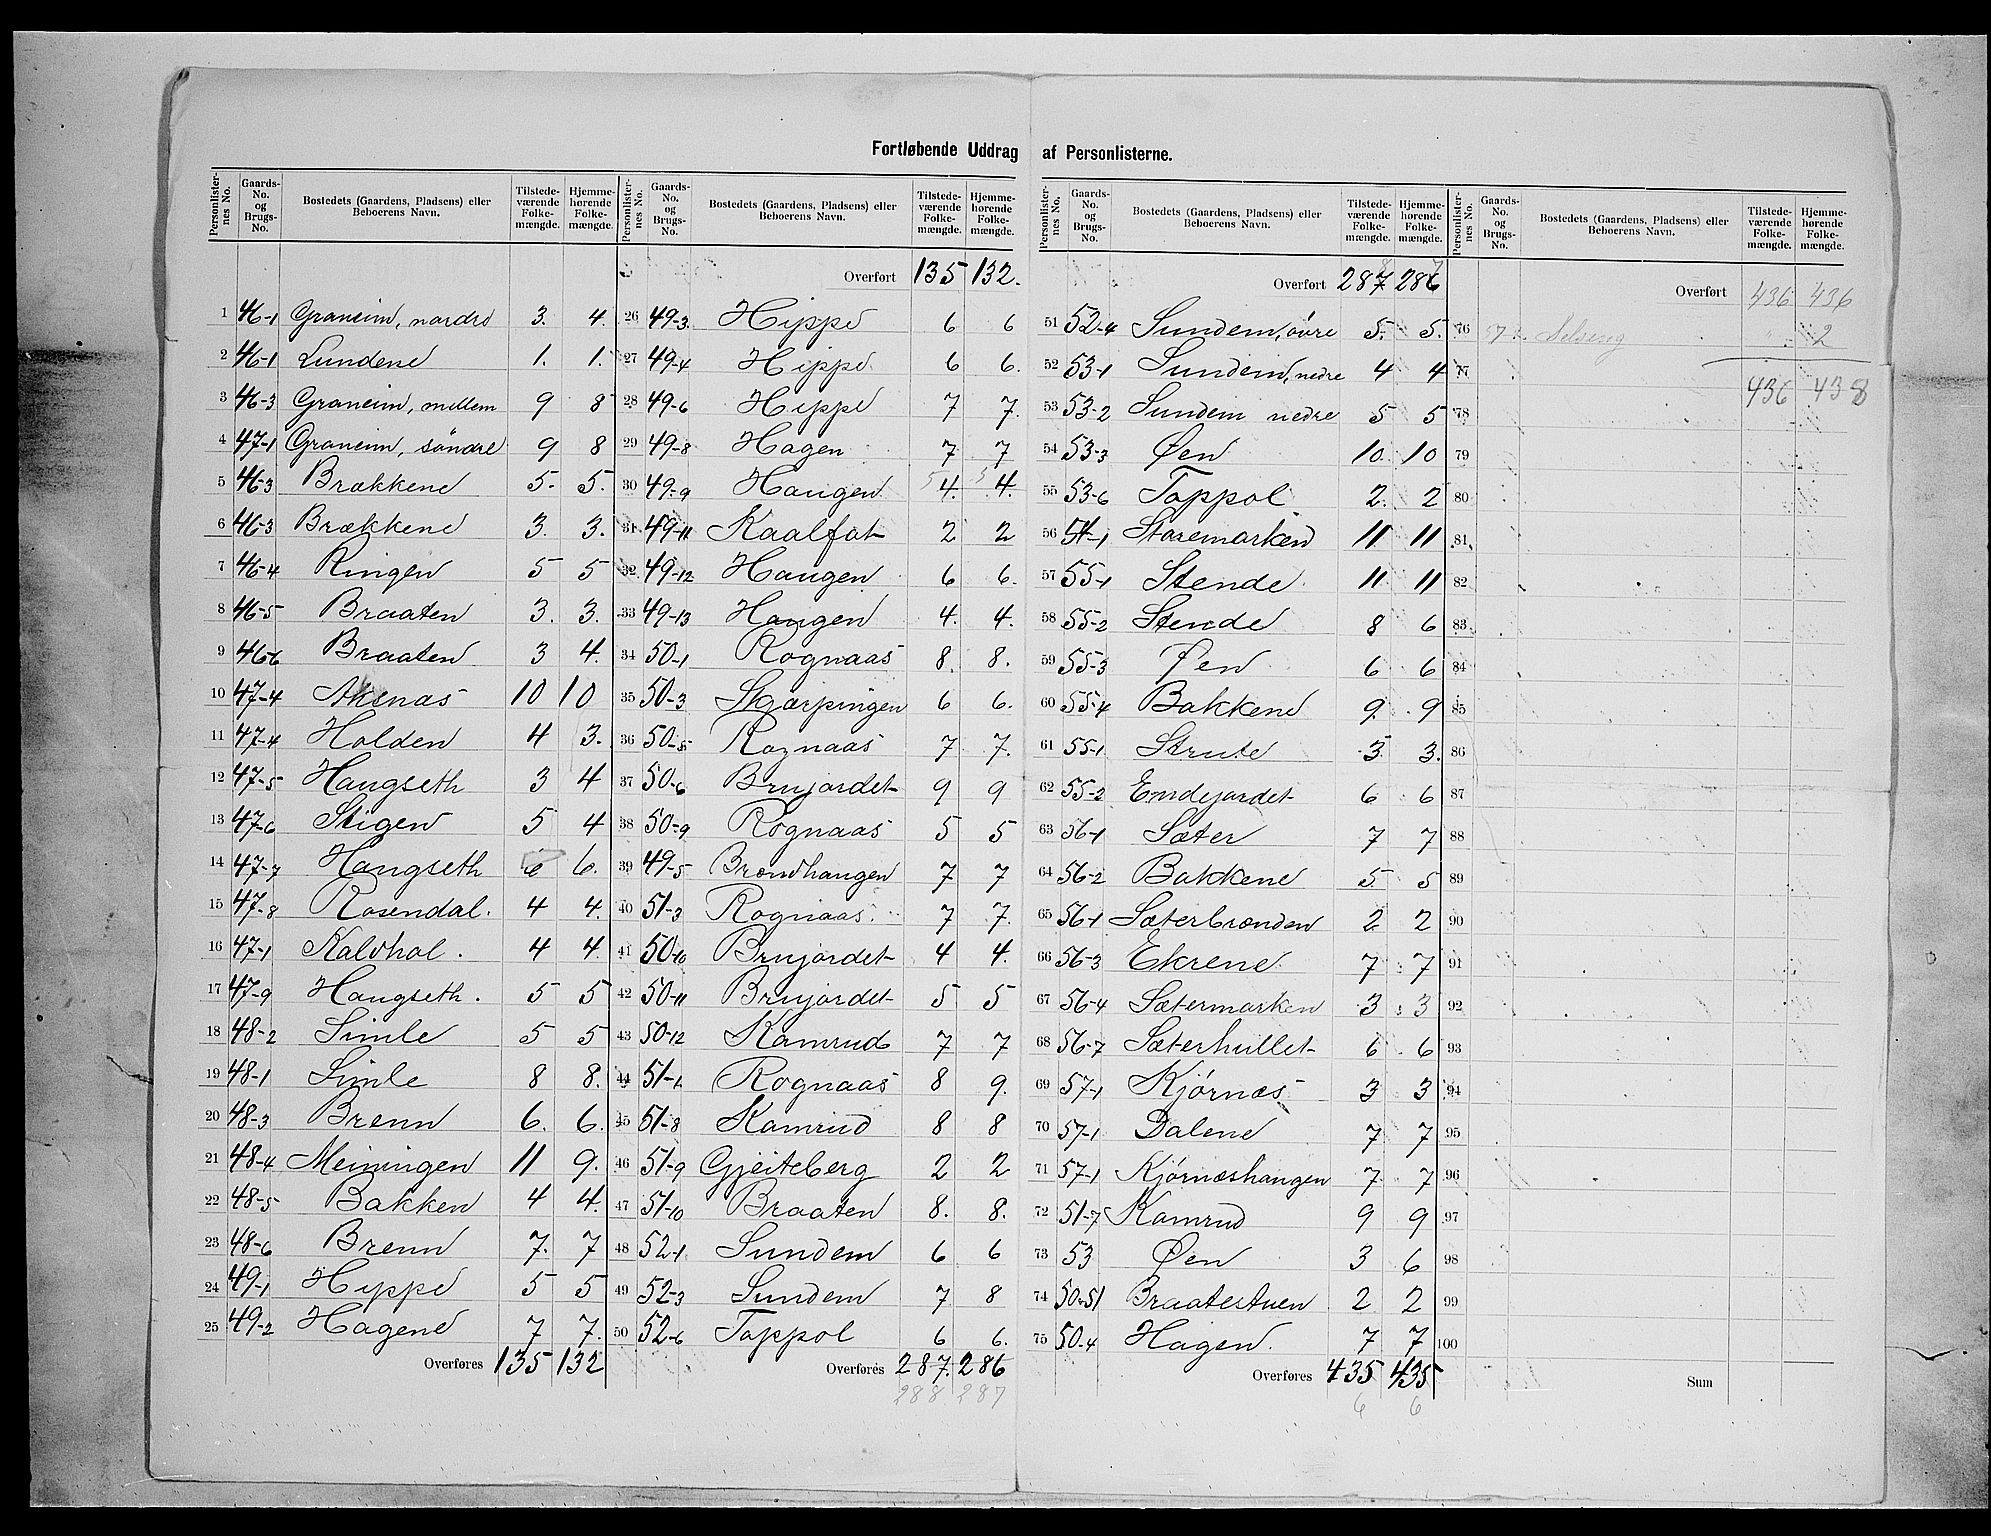 Fortløbende Uddrag af Personlisterne.
Personlisternes No. Gaards-No. og Brugs-No. Bostedets (Gaardens, Pladsens) eller Beboerens Navn. Tilstedeværende Folkemængde. Hjemmehørende Folkemængde.
1 46-1 Graneim, nordre 3. 4.
2 46-1 Lundene 1. 1.
3 46-3 Graneim, mellem 9 8
4 47-1 Graneim, söndre 9 8
5 46-3 Brækkene 5. 5.
6 46-3 Brækkene 3. 3.
7 46-4 Ringen 5 5
8 46-5 Braaten 3. 3.
9 46-6 Braaten 3 4.
10 47-4 Aksnæs 10 10
11 47-4 Holden 4 3.
12 47-5 Haugseth 3 4
13 47-6 Stigen 5 4
14 47-7 Haugseth 6 6.
15 47-8 Rosendal. 4 4.
16 47-1 Kaldhol. 4 4.
17 47-9 Haugseth. 5 5
18 48-2 Simle 5 5
19 48-1 Simle 8 8.
20 48-3 Brenn 6. 6.
21 48-4 Meiningen 11 9.
22 48-5 Bakken 4 4.
23 48-6 Brenn 7. 7
24 49-1 Hippe 5 5
25 49-2 Hagene 7 7.
Overføres 135 132
Personlisternes No. Gaards-No. og Brugs-No. Bostedets (Gaardens, Pladsens) eller Beboerens Navn. Tilstedeværende Folkemængde. Hjemmehørende Folkemængde.
Overført 135 132.
26 49-3 Hippe 6 6
27 49-4 Hippe 6 6.
28 49-6 Hippe 7 7.
29 49-8 Hagen 7 7
30 49-9 Haugen 5 4. 5 4.
31 49-11 Kaalfat 2 2
32 49-12 Haugen 6 6.
33 49-13 Haugen 4. 4.
34 50-1 Rognaas 8. 8.
35 50-3 Skjærpingen 6 6.
36 50-5 Rognaas 7 7.
37 50-6 Brujordet 9 9
38 50-9 Rognaas 5 5
39 49-5 Brændhaugen 7 7
40 51-3 Rognaas. 7 7.
41 50-10 Brujordet 4 4.
42 50-11 Brujordet 5 5
43 50-12 Kamrud 7 7
44 51-1 Rognaas 8 9.
45 51-8 Kamrud 8 8
46 51-9 Gjeiteberg 2 2
47 51-10 Braaten 8. 8.
48 52-1 Sundem 6 6
49 52-3 Sundem 7 8
50 52-6 Toppol 6 6.
Overføres 287. 286
288 287
Personlisternes No. Gaards-No. og Brugs-No. Bostedets (Gaardens, Pladsens) eller Beboerens Navn. Tilstedeværende Folkemængde. Hjemmehørende Folkemængde.
Overført 287 8 286 7
51 52-4 Sundem, övre 5. 5.
52 53-1 Sundem, nedre 4 4
53 53-2 Sundem nedre 5 5
54 53-3 Øen 10. 10
55 53-6 Toppol 2. 2
56 54-1 Storemarken 11 11
57 55-1 Stende 11. 11
58 55-2 Stende 8 6
59 55-3 Øen 6 6
60 55-4 Bakkene 9. 9
61 55-1 Strute 3 3.
62 55-2 Endejordet 6 6
63 56-1 Sæter 7 7
64 56-2 Bakkene 5. 5
65 56-1 Sæterbraaden 2 2
66 56-3 Ekrene 7 7
67 56-4 Sætermarken 3 3
68 56-7 Sæterhullet 6 6
69 57-1 Kjørnæs 3 3
70 57-1 Dalene 7 7
71 57-1 Kjørnæshaugen 7 7
72 51-7 Kamrud 9 9
73 53 Øen 3 6
74 50-51 Braatestuen 2 2
75 50-4 Hagen. 7 7
Overføres 435 435
6 6
Personlisternes No. Gaards-No. og Brugs-No. Bostedets (Gaardens, Pladsens) eller Beboerens Navn. Tilstedeværende Folkemængde. Hjemmehørende Folkemængde.
Overført 436 436
76 2
77
436 438
78
79
80
81
82
83
84
85
86
87
88
89
90
91
92
93
94
95
96
97
98
99
100
Sum